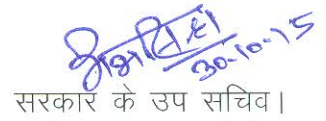 30-10-15
सरकार के उप सचिव।